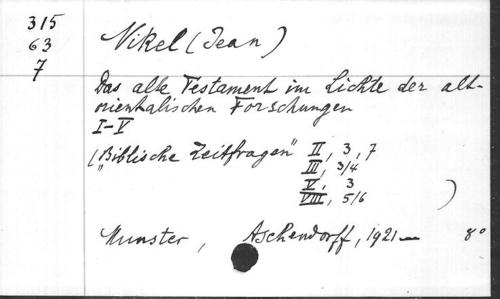 315
63
7
Nikel (Jean)
Das alte Testament im Lichte der alt-
orientalischen Forschungen
I-V
("Biblische Zeitfragen" II, 3, 7
III, 3/4
V, 3
VIII, 5/6 )
Munster, Aschendorff, 1921— 8°